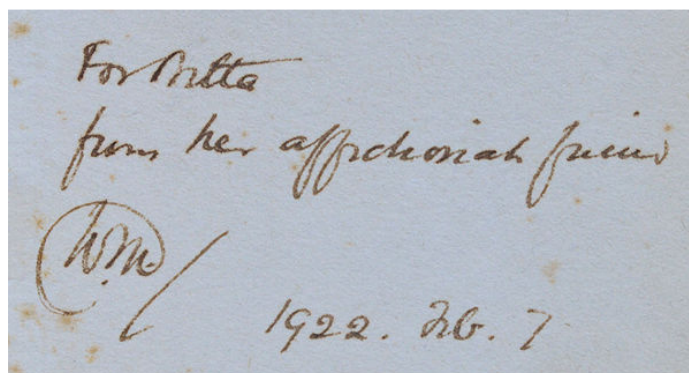 For Britta
from her affectionate friend
W.M.
1922. Feb. 7